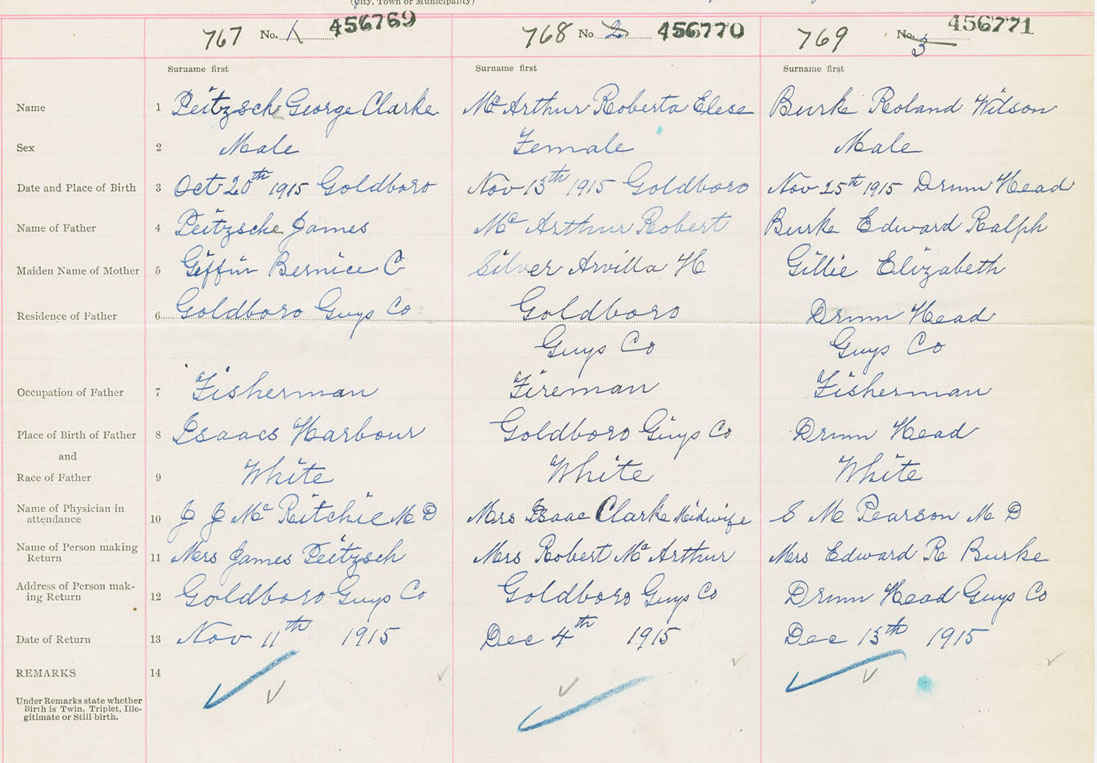 (City, Town or Municipality)
767 No. 1 456769 768 No. 2 456770 769 No. 3 456771
Surname first Surname first Surname first
Name 1 Peitzsch George Clarke McArthur Roberta Elese Burke Roland Wilson
Sex 2 Male Female Male
Date and Place of Birth 3 Oct 20th 1915 Goldboro Nov 13th 1915 Goldboro Nov 25th 1915 Drum Head
Name of Father 4 Peitzsch James McArthur Robert Burke Edward Ralph
Maiden Name of Mother 5 Giffin Bernice C Silver Arvilla H Gillie Elizabeth
Residence of Father 6 Goldboro Guys Co Goldboro Drum Head
Guys Co Guys Co
Occupation of Father 7 Fisherman Fireman Fisherman
Place of Birth of Father 8 Isaacs Harbour Goldboro Guys Co Drum Head
and
Race of Father 9 White White White
Name of Physician in
attendance 10 J J McRitchie M D Mrs Isaac Clarke Midwife S M Pearson M D
Name of Person making
Return 11 Mrs James Peitzsch Mrs Robert McArthur Mrs Edward R Burke
Address of Person mak-
ing Return 12 Goldboro Guys Co Goldboro Guys Co Drum Head Guys Co
Date of Return 13 Nov 11th 1915 Dec 4th 1915 Dec 13th 1915
REMARKS 14
Under Remarks state whether
Birth is Twin, Triplet, Ille-
gitimate or Still birth.